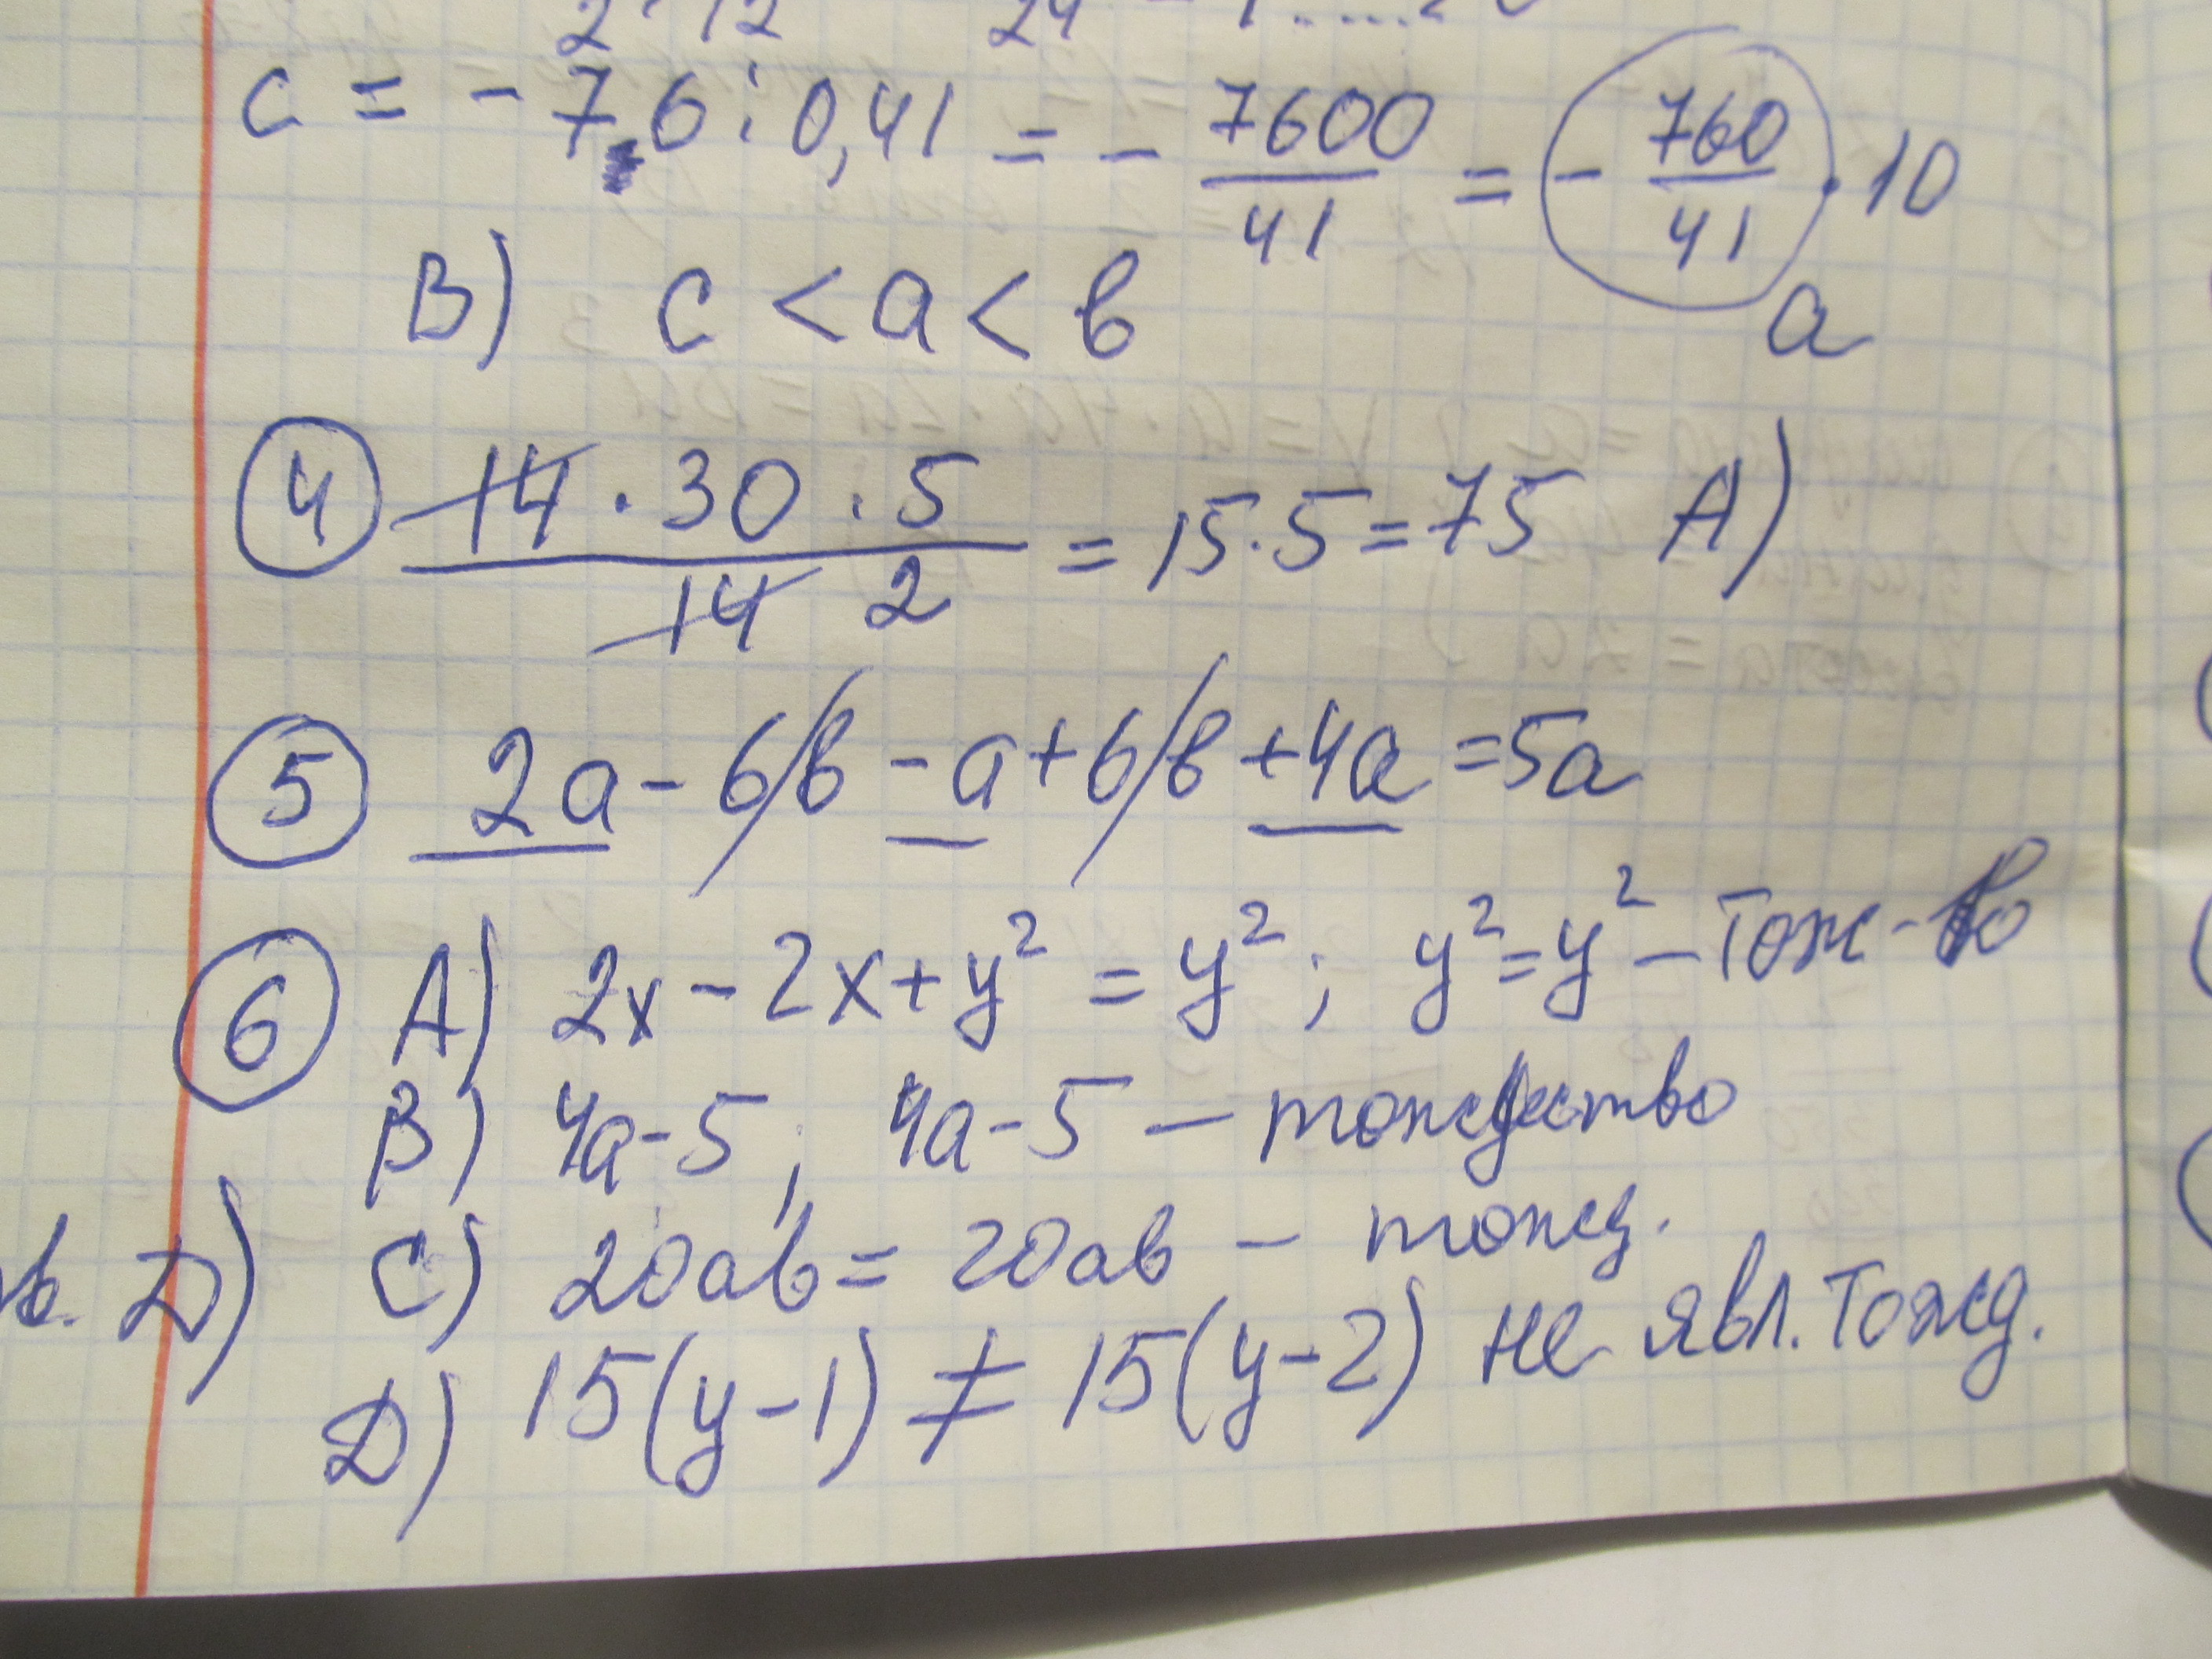 2 · 12 24
c = - 7,6 : 0,41 = - 7600/41 = - 760/41 · 10
a
B) c < a < b
4 14 · 30 · 5 / 14 2 = 15 · 5 = 75 A)
5 2a - 6b - a + 6b + 4a = 5a
6 A) 2x - 2x + y² = y² ; y² = y² - Тож-во
B) 4a - 5 ; 4a - 5 — тождество
D) C) 20ab = 20ab - тожд.
D) 15(y-1) ≠ 15(y-2) не явл. Тожд.